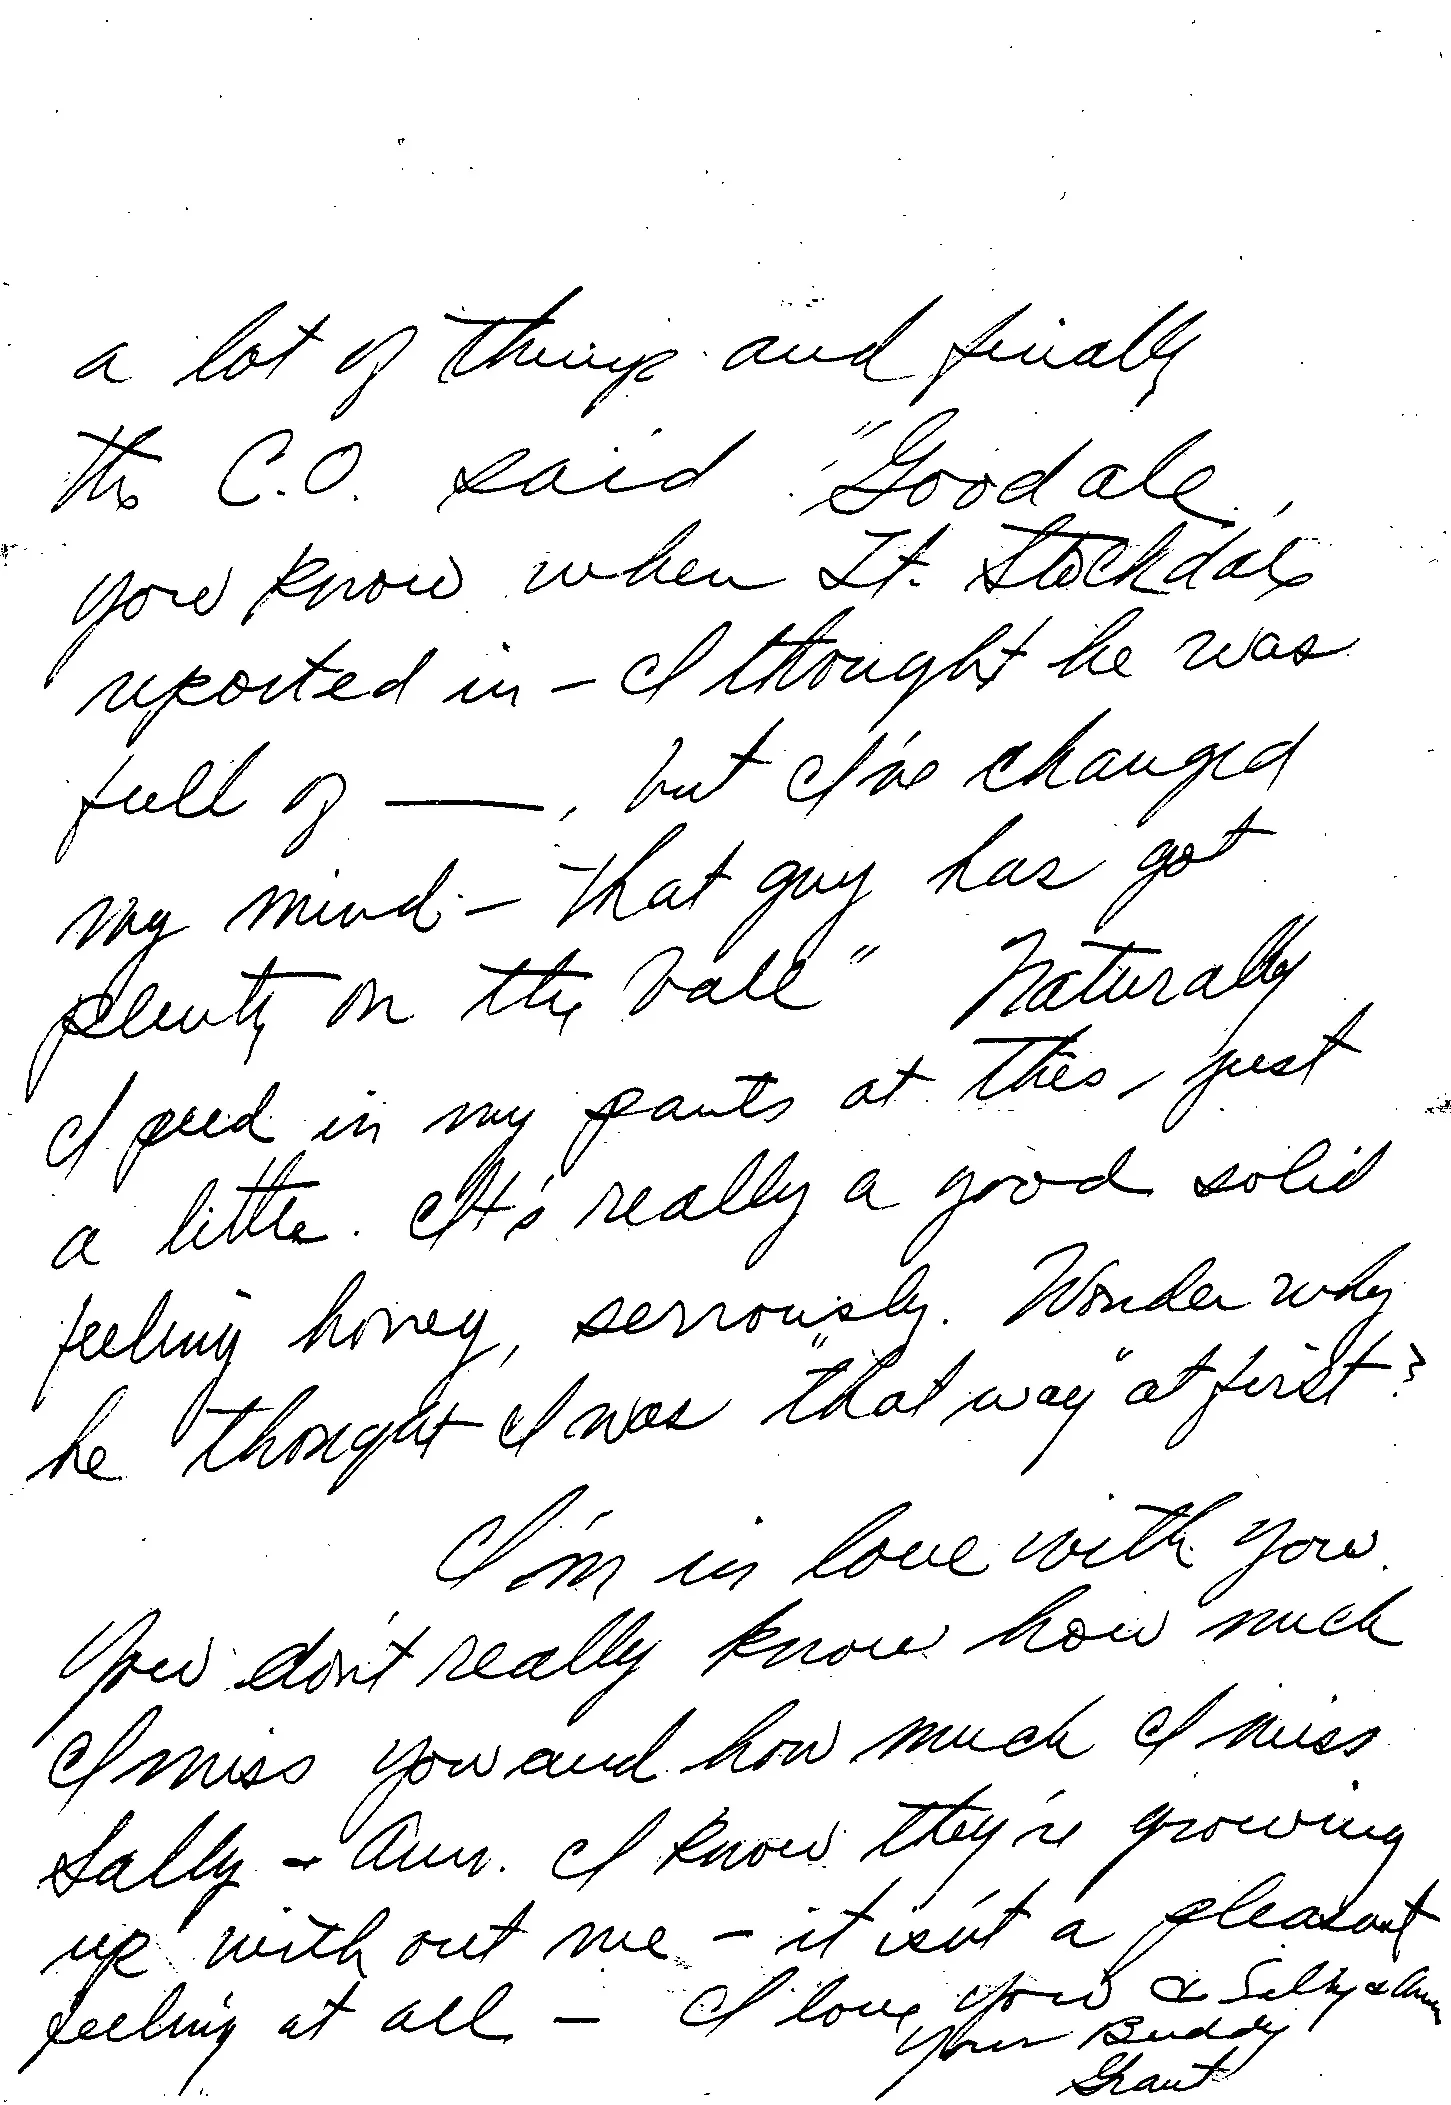 a lot of things and finally
the C.O. said "Goodale,
you know when Lt. Stockdale
reported in – I thought he was
full of ——, but I've changed
my mind – that guy has got
plenty on the ball" Naturally
I peed in my pants at this, just
a little. It's really a good solid
feeling honey, serrously. Wonder why
he thought I was "that way" at first?
I'm in love with you.
You don't really know how much
I miss you and how much I miss
Sally & Ann. I know they're growing
up without me – it isn't a pleasant
feeling at all – I love you & Sally & Ann
Your Buddy
Grant